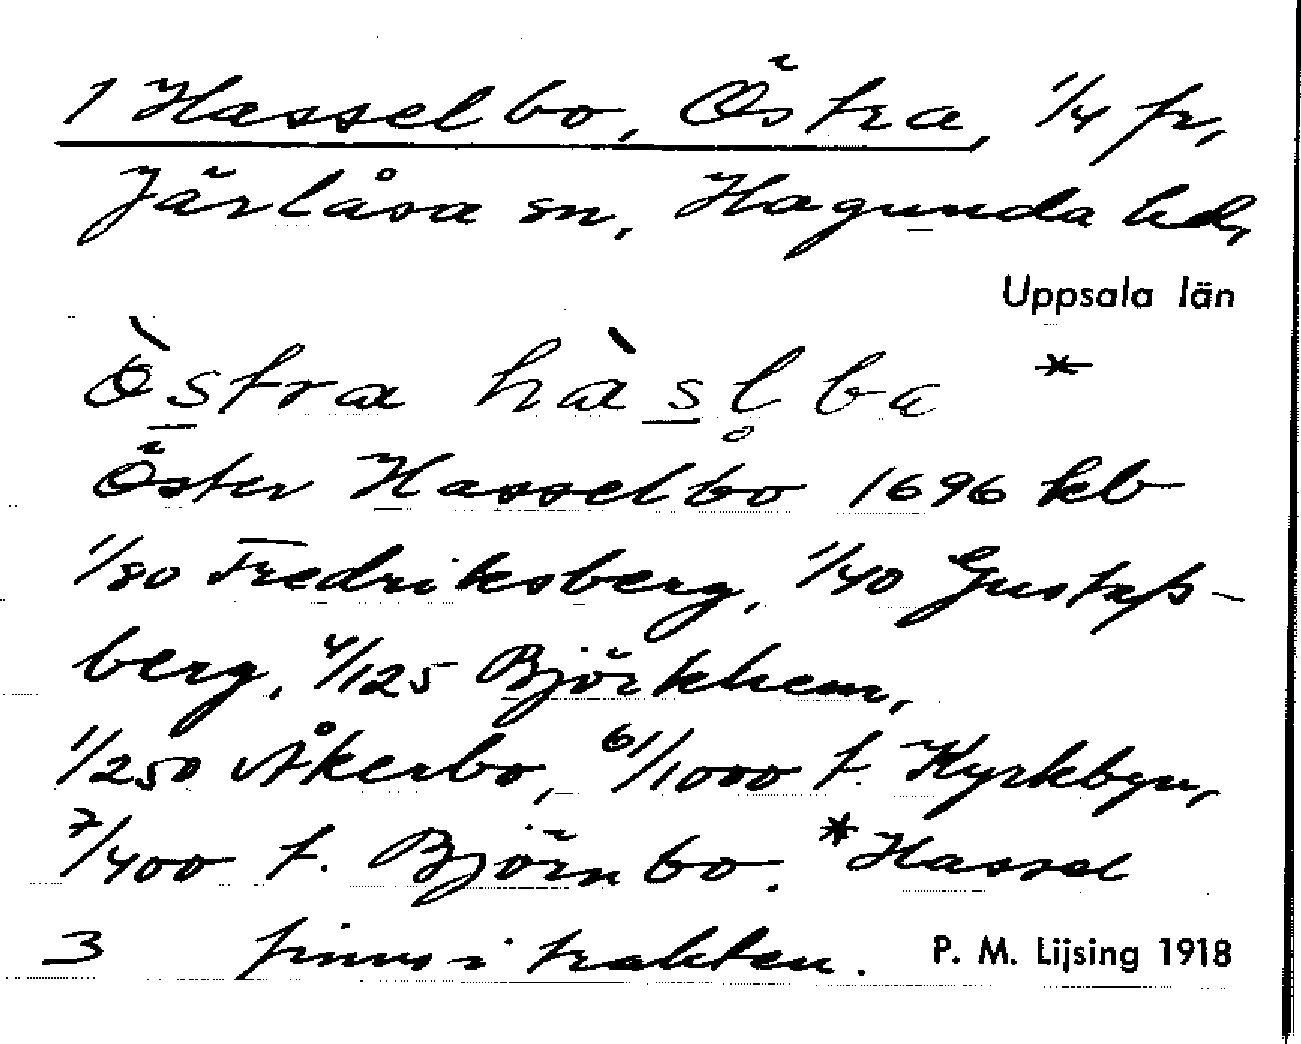 1 Hasselbo, Östra, 1/4 fr,
Järlåsa sn, Hagunda hd,
Uppsala län
Ö̀stra hàsl̥ba *
Öster Hasselbo 1696 kb
1/80 Fredriksberg, 1/40 Gustafs-
berg, 4/125 Björkhem,
1/250 Åkerbo, 61/1000 t. Kyrkbyn,
7/400 t. Björnbo. *Hassel
3 finns i trakten. P. M. Lijsing 1918